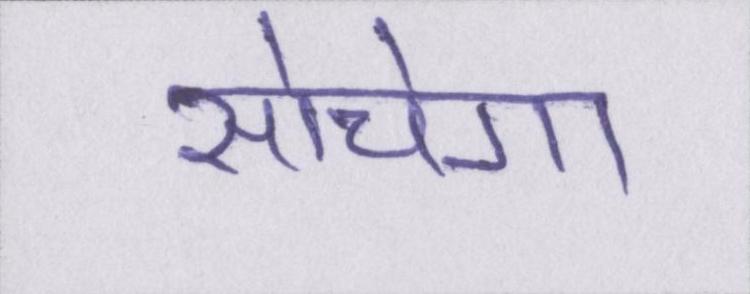 सोचेगा